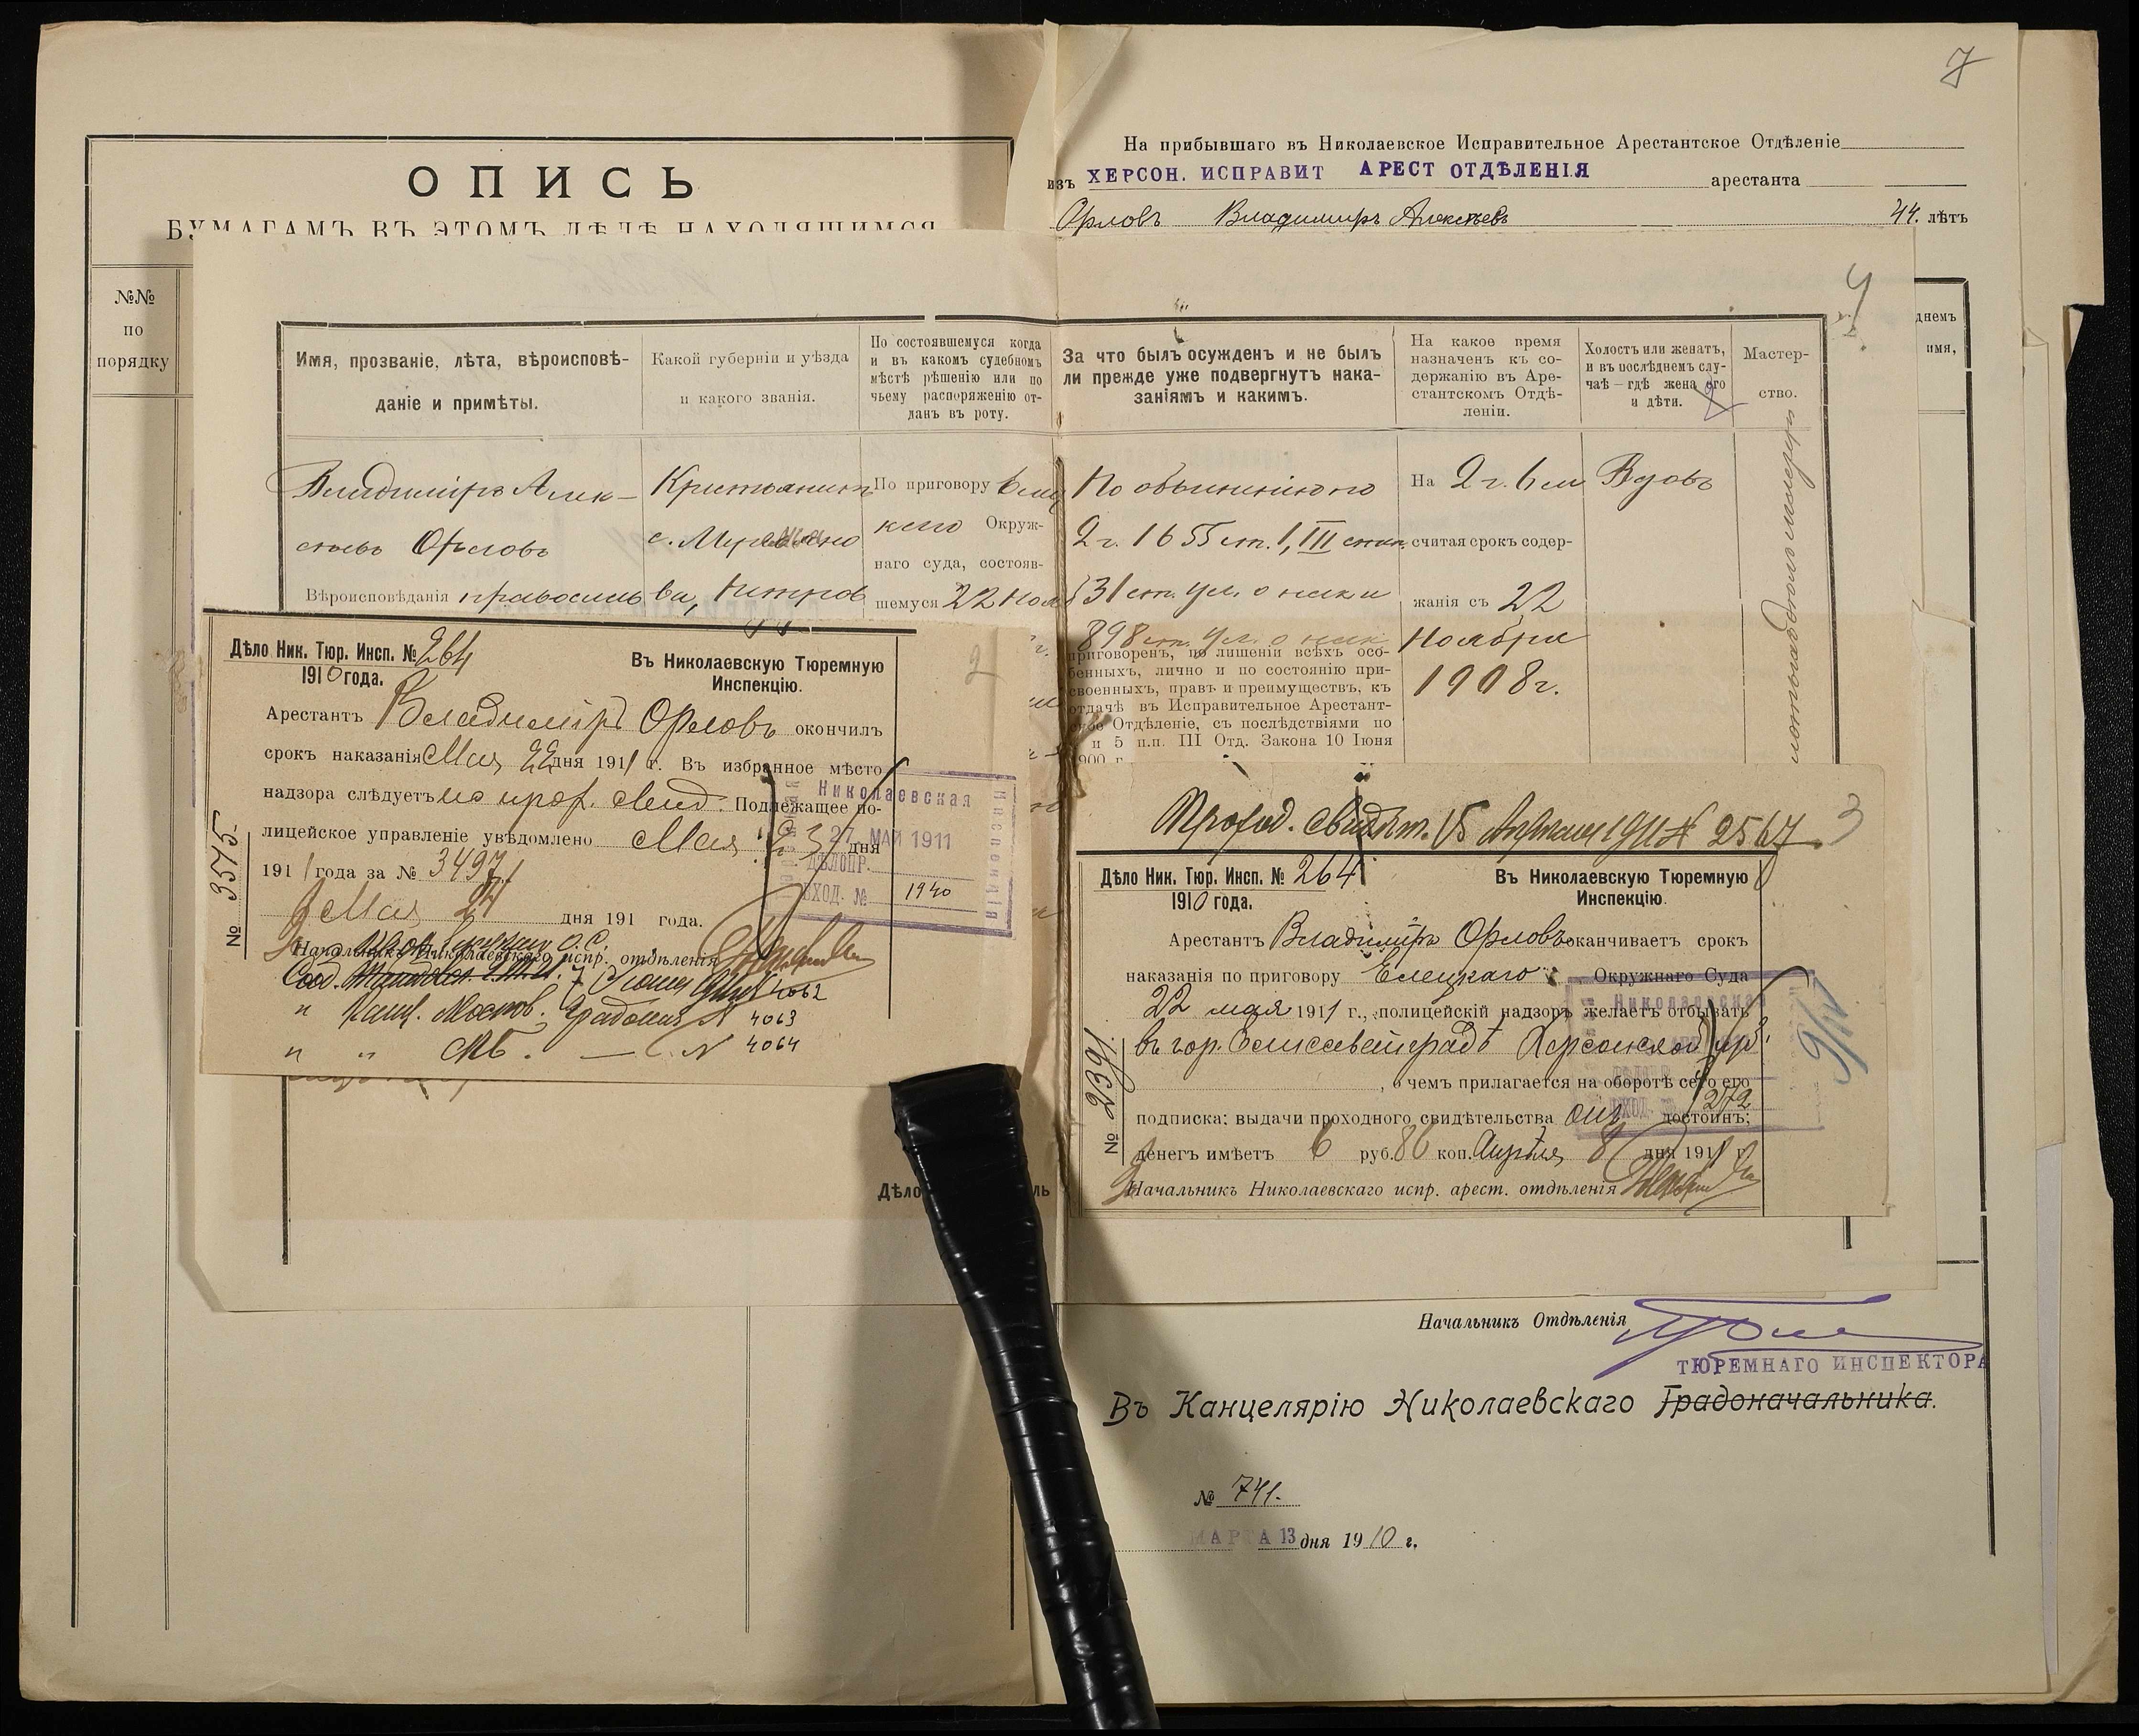 7
ОПИСЬ
БУМАГАМЪ ВЪ ЭТОМЪ ДѢЛѢ НАХОДЯЩИМСЯ
№№
по
порядку
На прибывшаго въ Николаевское Исправительное Арестантское Отдѣленіе
изъ ХЕРСОН. ИСПРАВИТ АРЕСТ ОТДѢЛЕНІЯ арестанта
Орловъ Владимиръ Алексѣевъ 44. лѣтъ
днемъ
имя,
4
Имя, прозваніе, лѣта, вѣроисповѣ-
даніе и примѣты.
Какой губерніи и уѣзда
и какого званія.
По состоявшемуся когда
и въ какомъ судебномъ
мѣстѣ рѣшенію или по
чьему распоряженію от-
данъ въ роту.
За что былъ осужденъ и не былъ
ли прежде уже подвергнутъ нака-
заніямъ и какимъ.
На какое время
назначенъ къ со-
держанію въ Аре-
стантскомъ Отдѣ-
леніи.
Холостъ или женатъ,
и въ послѣднемъ слу-
чаѣ — гдѣ жена его
и дѣти.
Мастер-
ство.
Владиміръ Алек-
сѣевъ Орловъ
Вѣроисповѣданія православ
Крестьянинъ
с.
ва, Петров
По приговору Елец
каго Окруж-
наго суда, состояв-
шемуся 22 Ноя
По обвиненію по
2 ч. 1655 ст. 1, III степ.
31 ст. Ул. о нак и
898 ст. Ул. о нак
приговоренъ, по лишеніи всѣхъ осо-
бенныхъ, лично и по состоянію при-
своенныхъ, правъ и преимуществъ, къ
отдачѣ въ Исправительное Арестант-
ское Отдѣленіе, съ послѣдствіями по
и 5 п.п. III Отд. Закона 10 Іюня
1900 г.
На 2 г. 6 м
считая срокъ содер-
жанія съ 22
Ноября
1908 г.
Вдовъ
2
Дѣло Ник. Тюр. Инсп. № 264
1910 года.
Въ Николаевскую Тюремную
Инспекцію.
Арестантъ Владиміръ Орловъ окончилъ
срокъ наказанія Мая 22 дня 1911 г. Въ избранное мѣсто
надзора слѣдуетъ по прох. свид. Подлежащее по-
лицейское управленіе увѣдомлено Мая 23 дня
1911 года за № 3497
Мая 24 дня 191 года.
Начальникъ Николаевскаго испр. отдѣленія
№ 3575
Николаевская
Инспекція
27 МАЙ 1911
ДѢЛОПР.
ВХОД. № 1940
4062
" Канц. Москов. Градонач. № 4063
" " СПб. — " — № 4064
Проход. свидѣт. 15 Апрѣля 1911 № 2567
3
Дѣло Ник. Тюр. Инсп. № 264
1910 года.
Въ Николаевскую Тюремную
Инспекцію.
Арестантъ Владиміръ Орловъ оканчиваетъ срокъ
наказанія по приговору Елецкаго Окружнаго Суда
22 мая 1911 г., полицейскій надзоръ желаетъ отбывать
въ гор. Елисаветградѣ Херсонской губ.
, о чемъ прилагается на оборотѣ сего его
подписка; выдачи проходного свидѣтельства онъ достоинъ;
денегъ имѣетъ 6 руб. 86 коп. Апрѣля 8 дня 1911 г.
Начальникъ Николаевскаго испр. арест. отдѣленія
№ 2391
Николаевская
ВХОД. № 1272
Дѣло
Начальникъ Отдѣленія
ТЮРЕМНАГО ИНСПЕКТОРА
Въ Канцелярію Николаевскаго Градоначальника.
№ 741.
МАРТА 13 дня 1910 г.